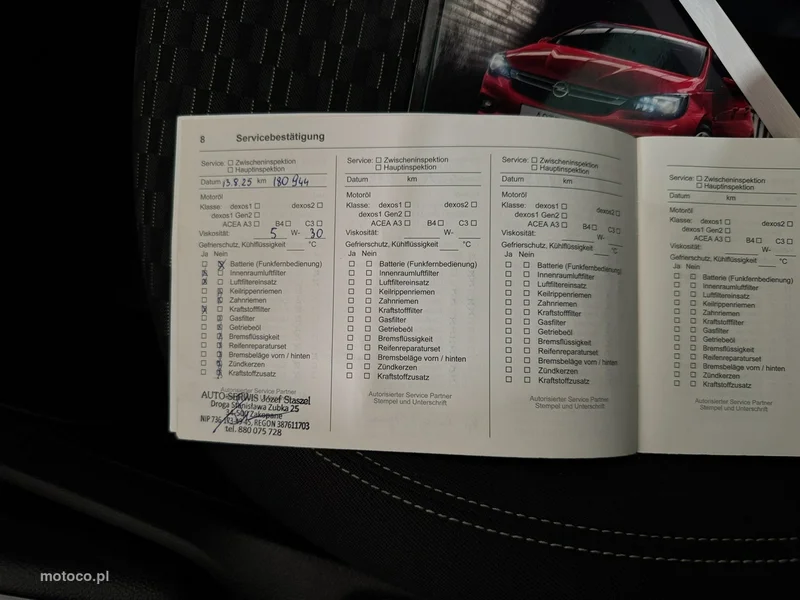 8 Servicebestätigung
Service: ☐ Zwischeninspektion
☐ Hauptinspektion
Datum 13.8.25 km 180 944
Motoröl
Klasse: dexos1 ☐ dexos2 ☐
dexos1 Gen2 ☐
ACEA A3 ☐ B4 ☐ C3 ☐
Viskosität: 5 W- 30
Gefrierschutz, Kühlflüssigkeit °C
Ja Nein
Batterie (Funkfernbedienung)
Innenraumluftfilter
Luftfiltereinsatz
Keilrippenriemen
Zahnriemen
Kraftstofffilter
Gasfilter
Getriebeöl
Bremsflüssigkeit
Reifenreparaturset
Bremsbeläge vorn / hinten
Zündkerzen
Kraftstoffzusatz
Autorisierter Service Partner
AUTO-SERWIS Józef Staszel
Droga Stanisława Zubka 25
34-500 Zakopane
REGON 387611703
tel. 880 075 728
Service: ☐ Zwischeninspektion
☐ Hauptinspektion
Datum km
Motoröl
Klasse: dexos1 ☐ dexos2 ☐
dexos1 Gen2 ☐
ACEA A3 ☐ B4 ☐ C3 ☐
Viskosität: W-
Gefrierschutz, Kühlflüssigkeit °C
Ja Nein
☐ ☐ Batterie (Funkfernbedienung)
☐ ☐ Innenraumluftfilter
☐ ☐ Luftfiltereinsatz
☐ ☐ Keilrippenriemen
☐ ☐ Zahnriemen
☐ ☐ Kraftstofffilter
☐ ☐ Gasfilter
☐ ☐ Getriebeöl
☐ ☐ Bremsflüssigkeit
☐ ☐ Reifenreparaturset
☐ ☐ Bremsbeläge vorn / hinten
☐ ☐ Zündkerzen
☐ ☐ Kraftstoffzusatz
Autorisierter Service Partner
Stempel und Unterschrift
Service: ☐ Zwischeninspektion
☐ Hauptinspektion
Datum km
Motoröl
Klasse: dexos1 ☐ dexos2 ☐
dexos1 Gen2 ☐
ACEA A3 ☐ B4 ☐ C3 ☐
Viskosität: W-
Gefrierschutz, Kühlflüssigkeit °C
Ja Nein
☐ ☐ Batterie (Funkfernbedienung)
☐ ☐ Innenraumluftfilter
☐ ☐ Luftfiltereinsatz
☐ ☐ Keilrippenriemen
☐ ☐ Zahnriemen
☐ ☐ Kraftstofffilter
☐ ☐ Gasfilter
☐ ☐ Getriebeöl
☐ ☐ Bremsflüssigkeit
☐ ☐ Reifenreparaturset
☐ ☐ Bremsbeläge vorn / hinten
☐ ☐ Zündkerzen
☐ ☐ Kraftstoffzusatz
Autorisierter Service Partner
Stempel und Unterschrift
Service: ☐ Zwischeninspektion
☐ Hauptinspektion
Datum km
Motoröl
Klasse: dexos1 ☐ dexos2 ☐
dexos1 Gen2 ☐
ACEA A3 ☐ B4 ☐ C3 ☐
Viskosität: W-
Gefrierschutz, Kühlflüssigkeit °C
Ja Nein
☐ ☐ Batterie (Funkfernbedienung)
☐ ☐ Innenraumluftfilter
☐ ☐ Luftfiltereinsatz
☐ ☐ Keilrippenriemen
☐ ☐ Zahnriemen
☐ ☐ Kraftstofffilter
☐ ☐ Gasfilter
☐ ☐ Getriebeöl
☐ ☐ Bremsflüssigkeit
☐ ☐ Reifenreparaturset
☐ ☐ Bremsbeläge vorn / hinten
☐ ☐ Zündkerzen
☐ ☐ Kraftstoffzusatz
Autorisierter Service Partner
Stempel und Unterschrift
motoco.pl